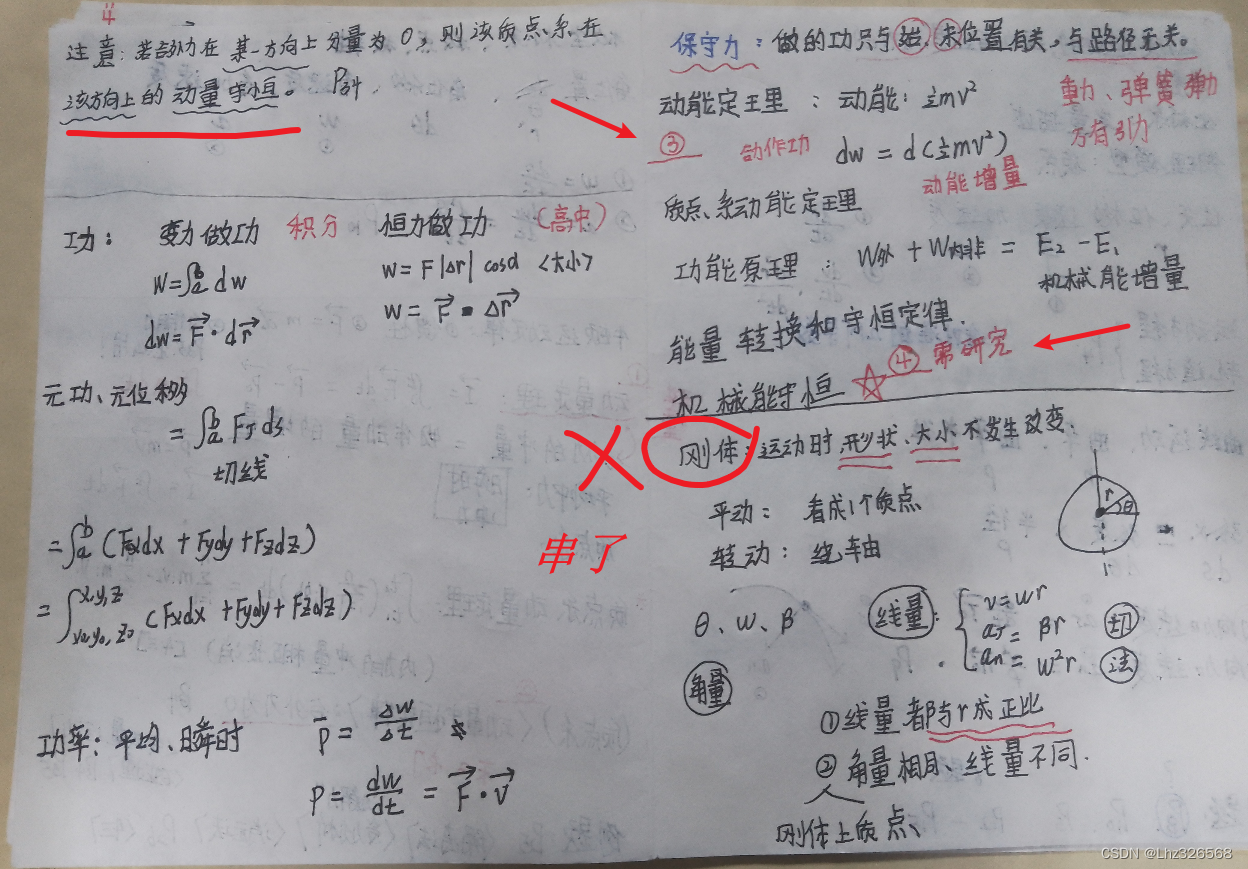 4
注意：若合外力在某一方向上分量为0，则该质点系在
该方向上的动量守恒。 P84
功： 变力做功 积分 恒力做功 （高中）
W=∫ₐᵇ dw
w = F |Δr| cosα <大小>
w = F⃗ · Δr⃗
dw = F⃗ · dr⃗
元功、元位移
= ∫ₐᵇ Fτ ds
切线
= ∫ₐᵇ (Fxdx + Fydy + Fzdz)
= ∫ x,y,z x₀,y₀,z₀ (Fxdx + Fydy + Fzdz)
功率：平均、瞬时 P̄ = Δw/Δt
P = dw/dt = F⃗ · v⃗
保守力：做的功只与始,末位置有关，与路径无关。
重力、弹簧弹力
万有引力
动能定理：动能：½mv²
③ 合作功 dw = d(½mv²)
动能增量
质点系动能定理
功能原理：W外 + W内非 = E₂ - E₁
机械能增量
能量转换和守恒定律.
④ 需研究
机械能守恒 ☆
刚体：运动时形状、大小不发生改变
串了
平动： 看成1个质点
转动： 绕轴
r θ
r
θ、w、β
角量
线量：
v = wr
aτ = βr 切
an = w²r 法
①线量都与r成正比
②角量相同、线量不同.
刚体上质点、
CSDN @Lhz326568